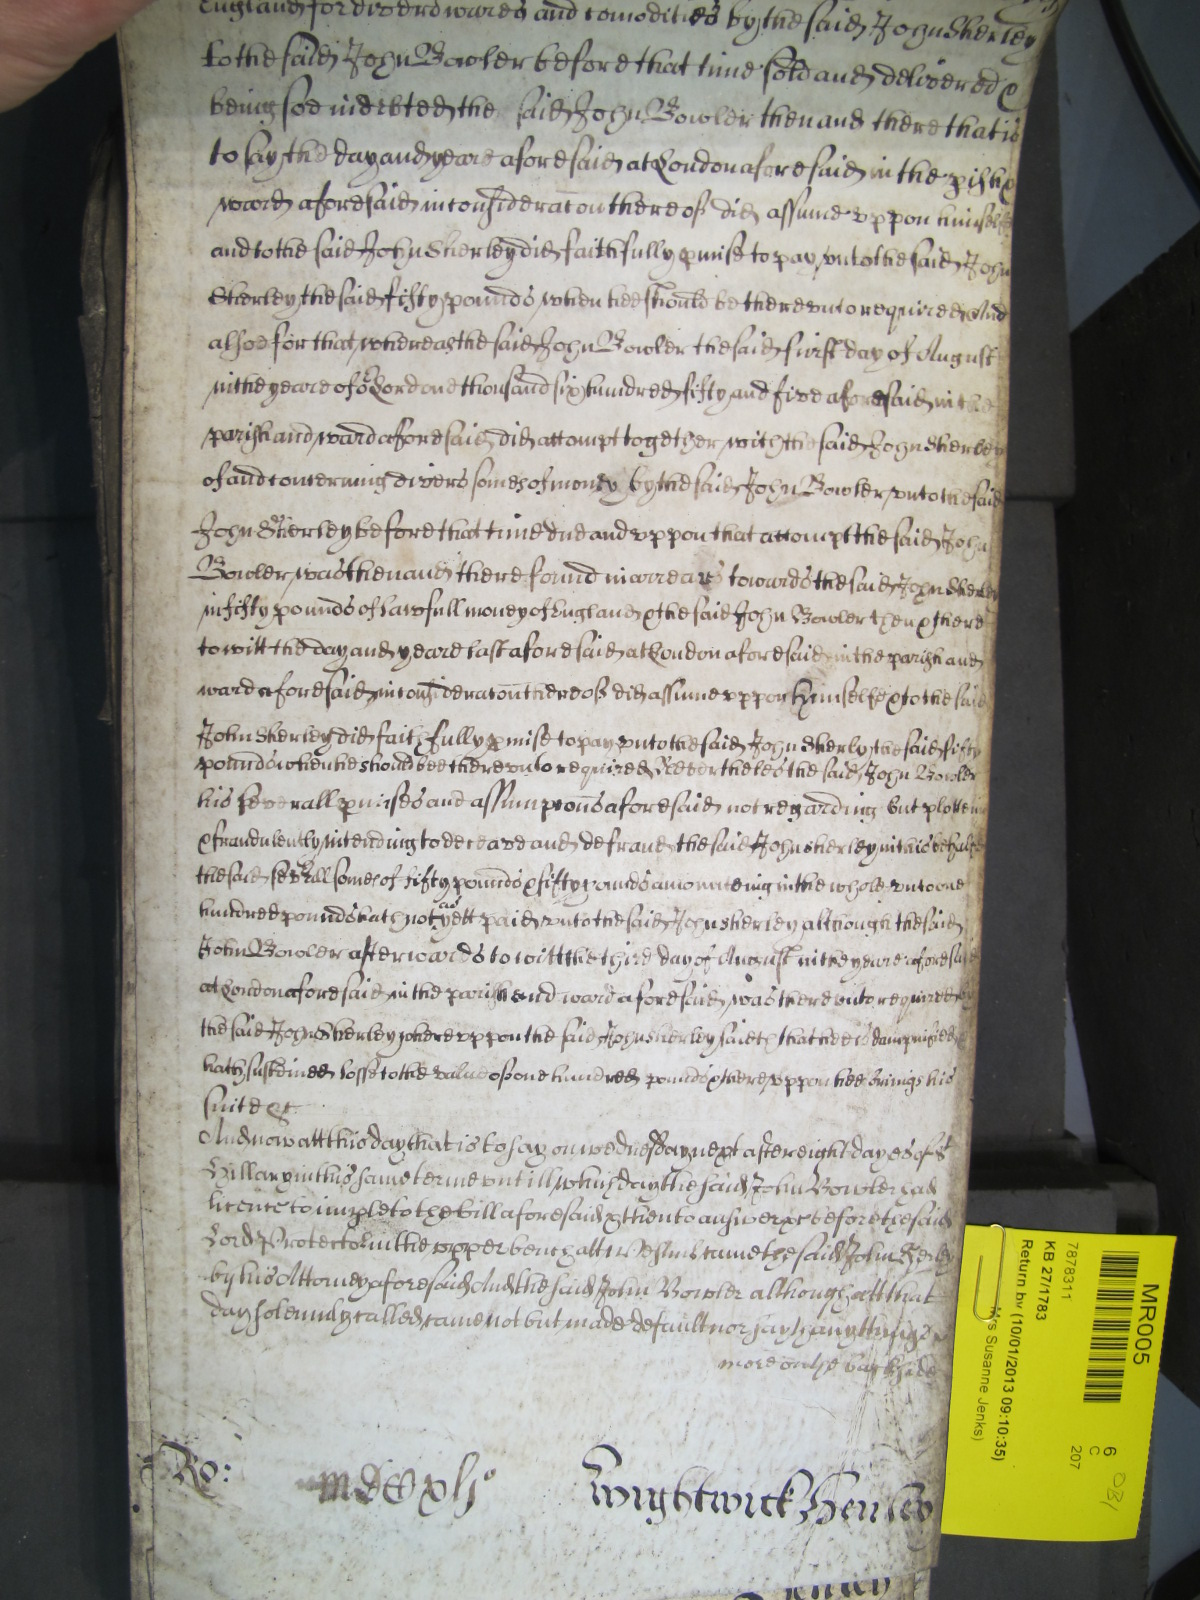 England for diverd wares and comodities by the said John Sherley
to the said John Bowler before that time sold and delivered &
being soe indebted the said John Bowler then and there that is
to say the day and yeare aforesaid at London aforesaid in the pish &
ward aforesaid in consideracon thereof did assume vppon himselfe
and to the said John Sherley did faithfully pmise to pay vnto the said John
Sherley the said fifty pounds when hee should be therevnto required And
alsoe for that whereas the said John Bowler the said first day of August
in the yeare of or Lord one thousand six hundred fifty and five aforesaid in the
parish and ward aforesaid did attompt together with the said John Sherley
of and concerning divers somes of money by the said John Bowler vnto the said
John Sherley before that time due and vppon that attompt the said John
Bowler was then and there found in arrears towards the said John Sherley
in fifty pounds of lawfull money of England & the said John Bowler then & there
to witt the day and yeare last aforesaid at London aforesaid in the parish and
ward aforesaid in consideracon thereof did assume vppon himselfe & to the said
John Sherley did faithfully pmise to pay vnto the said John Sherly the said fifty
pounds when he should bee therevnto required Neverthelesse the said John Bowler
his severall pmises and assumpcons aforesaid not regarding but plotting
& fraudulently intending to deceave and defraud the said John Sherley in this behalfe
the said severall somes of fifty pounds & fifty pounds amounteing in the whole vnto one
hundred pounds hath not as yett paid vnto the said John Sherley although the said
John Bowler afterwards to witt the third day of August in the yeare aforesaid
at London aforesaid in the parish and ward aforesaid was therevnto required by
the said John Sherley whereuppon the said John Sherley saieth that hee is dampnified &
hath susteined losse to the value of one hundred pounds & therevppon hee brings his
suite &c
And now att this day that is to say on wednesday next after eight dayes of St
Hillary in this same terme vntill which day the said John Bowler had
licence to imple to the bill aforesaid & then to answer &c before the said
Lord Protector in the vpper bench att Westmr came the said John Sherley
by his Attorney aforesaid And the said John Bowler although att that
day solemnly called came not but made default nor sayth any thing
more on the backside
Ro:
Wightwick Henley
MR005
7878311
KB 27/1783
Return by (10/01/2013 09:10:35)
Mrs Susanne Jenks)
6
C
207